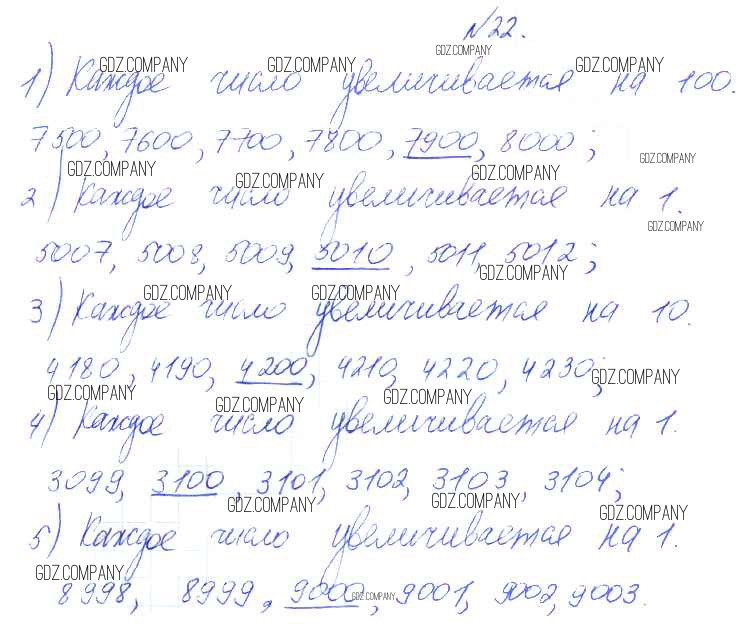 №22.
1) Каждое число увеличивается на 100.
7500, 7600, 7700, 7800, 7900, 8000;
2) Каждое число увеличивается на 1.
5007, 5008, 5009, 5010, 5011, 5012;
3) Каждое число увеличивается на 10.
4180, 4190, 4200, 4210, 4220, 4230;
4) Каждое число увеличивается на 1.
3099, 3100, 3101, 3102, 3103, 3104;
5) Каждое число увеличивается на 1.
8998, 8999, 9000, 9001, 9002, 9003.
GDZ.COMPANY
GDZ.COMPANY GDZ.COMPANY GDZ.COMPANY
GDZ.COMPANY
GDZ.COMPANY GDZ.COMPANY GDZ.COMPANY
GDZ.COMPANY
GDZ.COMPANY
GDZ.COMPANY GDZ.COMPANY
GDZ.COMPANY
GDZ.COMPANY GDZ.COMPANY GDZ.COMPANY
GDZ.COMPANY GDZ.COMPANY GDZ.COMPANY
GDZ.COMPANY GDZ.COMPANY